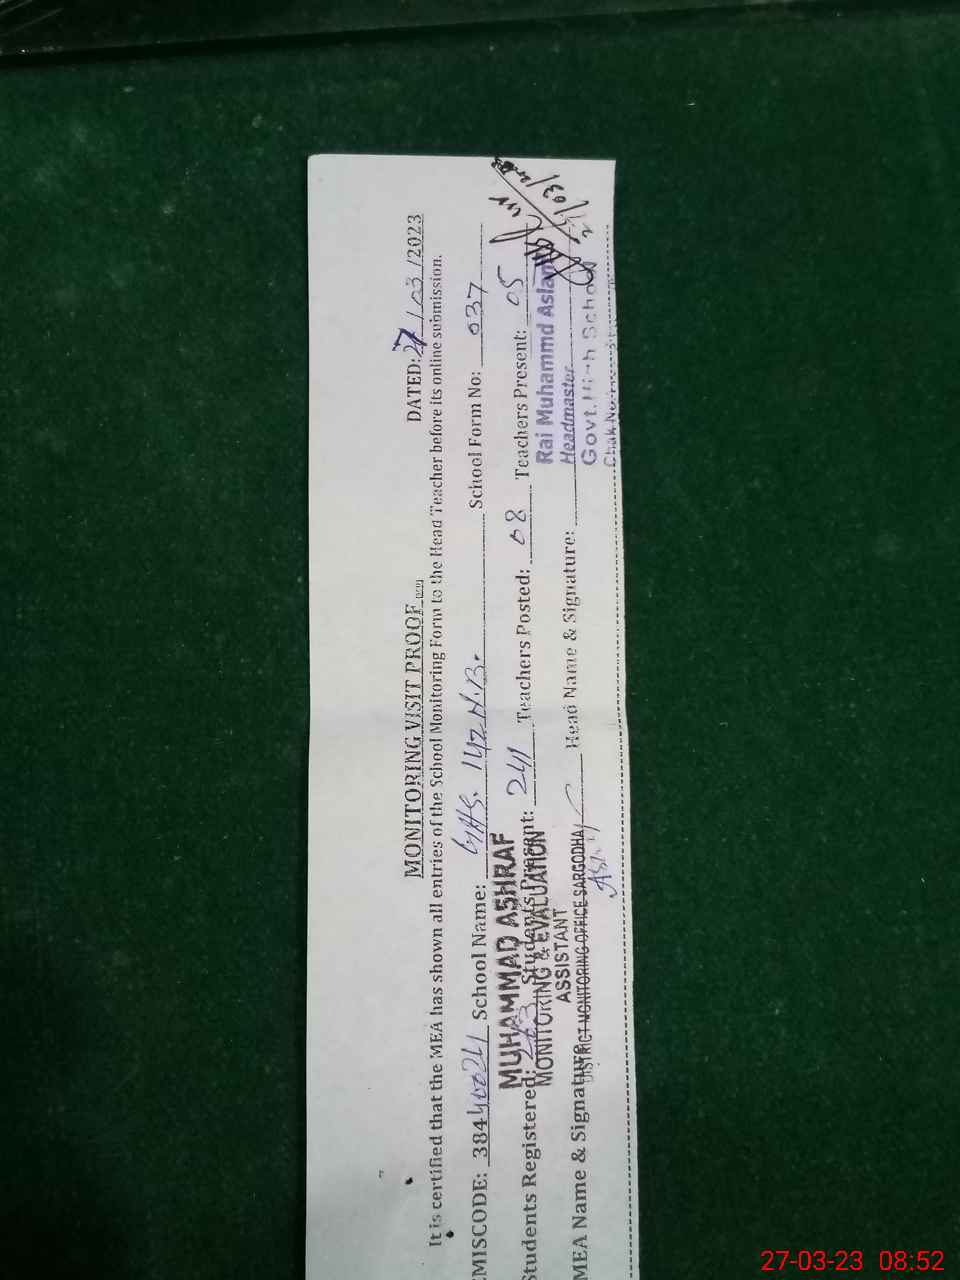 MONITORING VISIT PROOF
DATED: 27/03/2023
It is certified that the MEA has shown all entries of the School Monitoring Form to the Head Teacher before its online submission.
EMISCODE: 38440024 School Name: GHS. 142 N.B. School Form No: 037
MUHAMMAD ASHRAF
Students Registered: 263 Students Present: 241 Teachers Posted: 08 Teachers Present: 05
MONITORING & EVALUATION
ASSISTANT
DISTRICT MONITORING OFFICE SARGODHA
MEA Name & Signature Head Name & Signature:
Rai Muhammd Aslam
Headmaster
Govt. High School
Chak No.
27/03/2023
27-03-23 08:52